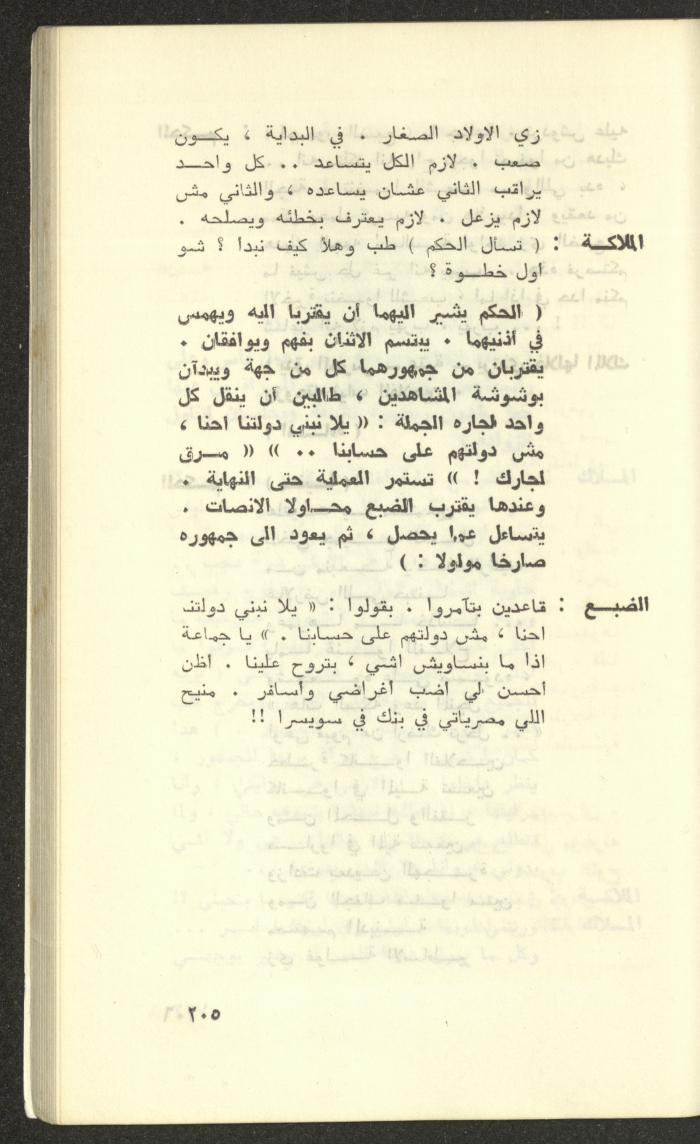 زي الاولاد الصغار . في البداية ، يكـــون
صعب . لازم الكل يتساعد .. كل واحـــد
يراقب الثاني عشان يساعده ، والثاني مش
لازم يزعل . لازم يعترف بخطئه ويصلحه .
الملاكـــة : ( تسأل الحكم ) طب وهلأ كيف نبدا ؟ شو
أول خطــوة ؟
( الحكم يشير اليهما أن يقتربا اليه ويهمس
في أذنيهما . يبتسم الاثنان بفهم ويوافقان .
يقتربان من جمهورهما كل من جهة ويبدآن
بوشوشة المشاهدين ، طالبين أن ينقل كل
واحد لجاره الجملة : (( يلا نبني دولتنا احنا ،
مش دولتهم على حسابنا .. )) (( مــرق
لجارك ! )) تستمر العملية حتى النهاية .
وعندها يقترب الضبع محـــاولا الانصات .
يتساءل عما يحصل ، ثم يعود الى جمهوره
صارخا مولولا : )
الضبـــع : قاعدين بتآمروا . بقولوا : « يلا نبني دولتنـ
احنا ، مش دولتهم على حسابنا . » يا جماعة
اذا ما بنساويش اشي ، بتروح علينا . اظن
أحسن لي أضب أغراضي وأسافر . منيح
اللي مصرياتي في بنك في سويسرا !!
٢٠٥